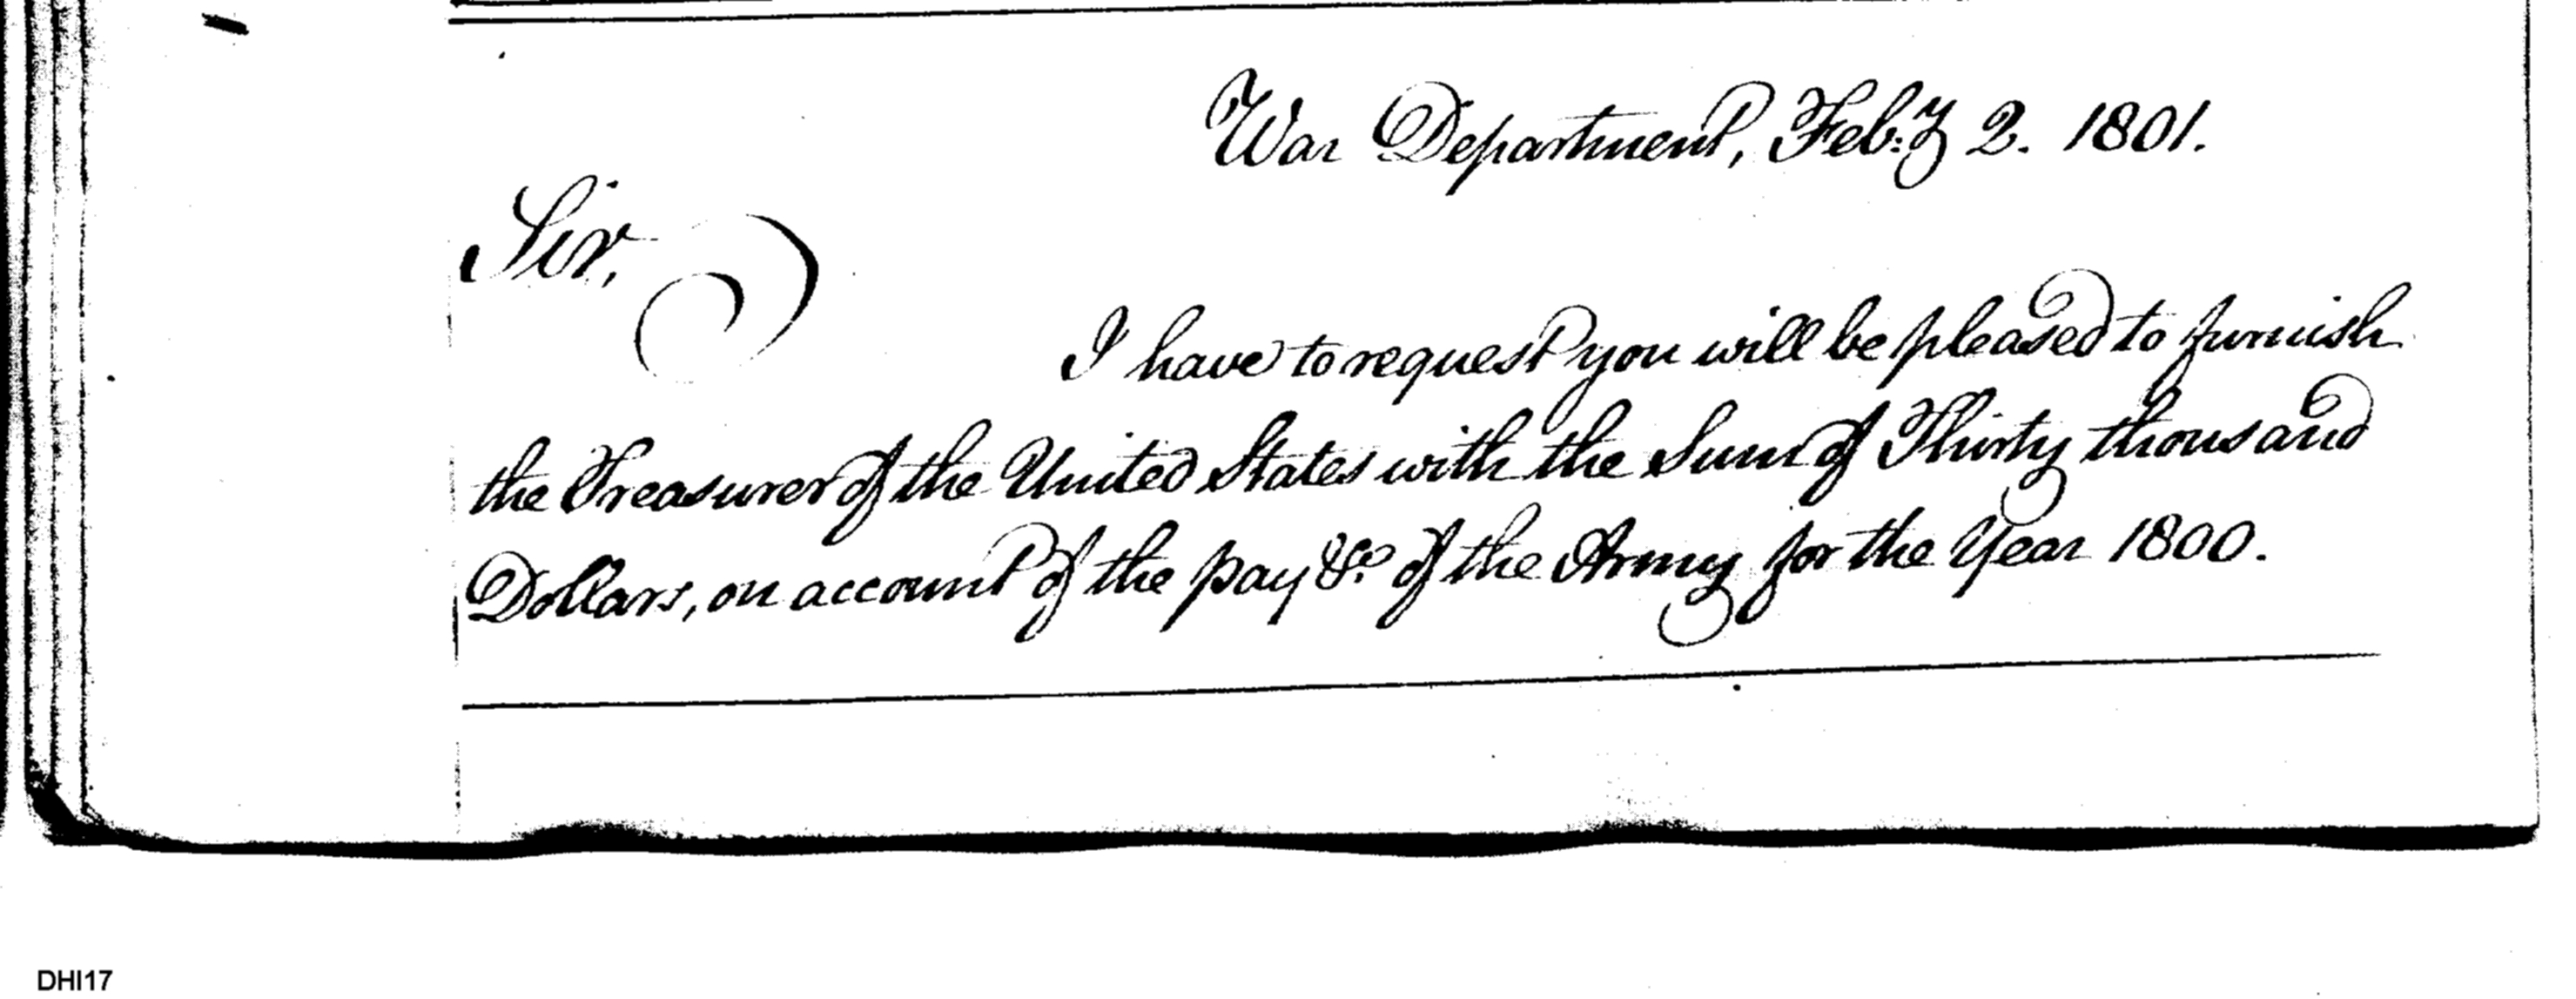 War Department, Feb:y 2. 1801.
Sir,
I have to request you will be pleased to furnish
the Treasurer of the United States with the Sum of Thirty thousand
Dollars, on account of the pay &c. of the Army for the Year 1800.
DHI17